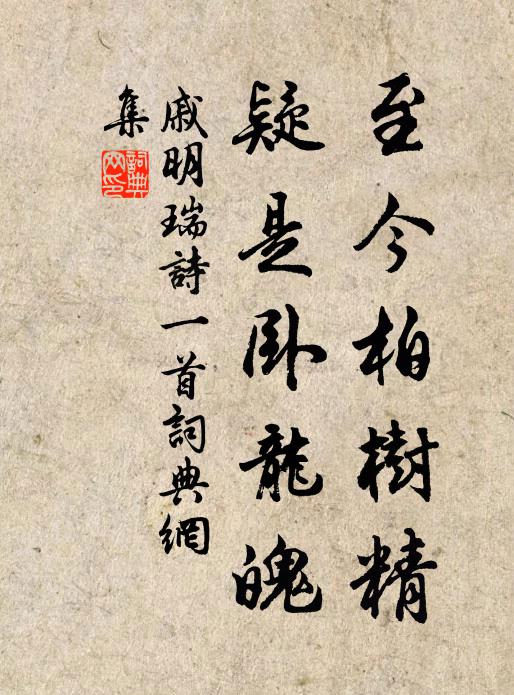 至今柏樹精
疑是卧龍魄
戚明瑞詩一首詞典網
集
詞典網印